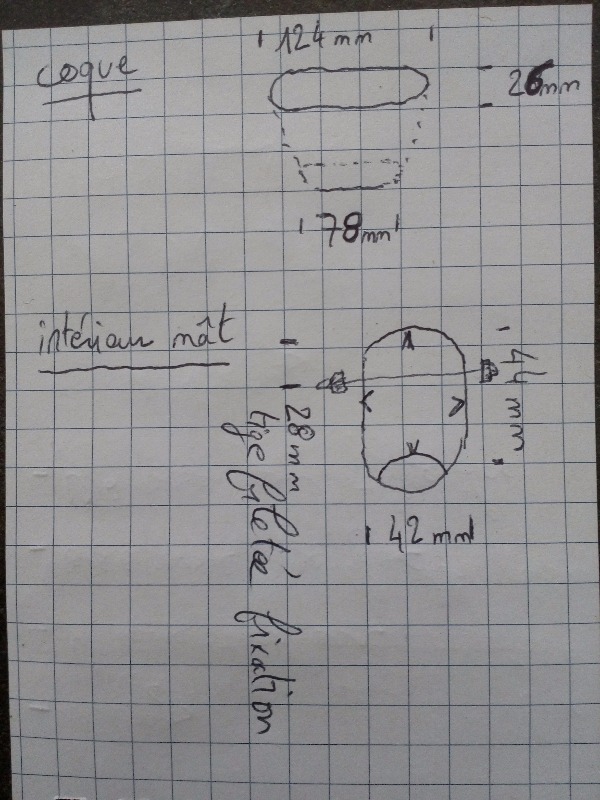 coque
124 mm
26mm
78mm
intérieur mât
44 mm
28mm
tige filetée fixation
42 mm